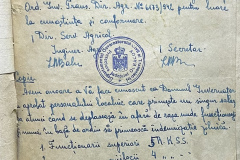 Ord. Guv. Trans. Dir. Agr. No 6673/942 pentru luare
la cunoștință și conformare.
Dir. Serv. Agricol
Inginer
Secretar
Copie
Am onoare a Vă face cunoscut că Domnul Guvernator
a aprobat personalului localnic care primește un singur salar
pe lună când se deplasează în afara de raza unde funcționează
în de ordin să primească indemnizație zilnică
1. Funcționarii superiori 5 R.K.S.S.
4